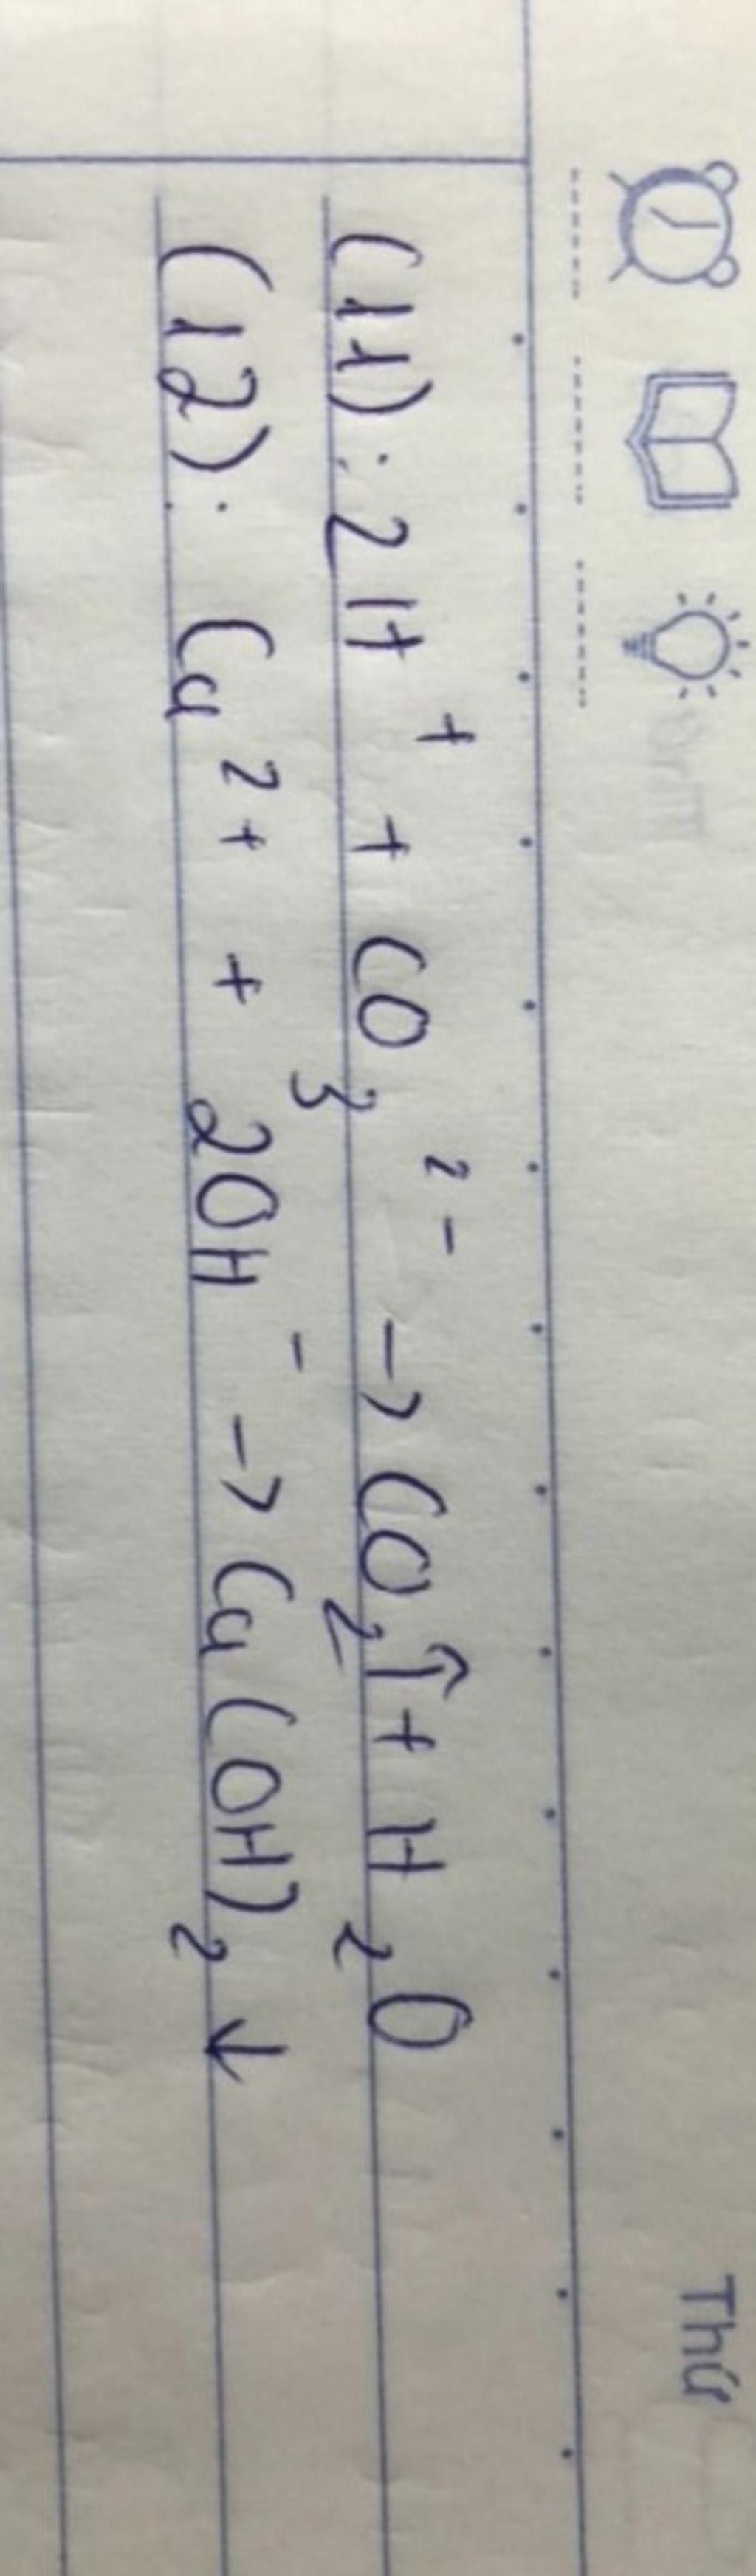 Thứ
(11): 2H⁺ + CO₃²⁻ → CO₂↑ + H₂O
(12): Cu²⁺ + 2OH⁻ → Cu(OH)₂ ↓